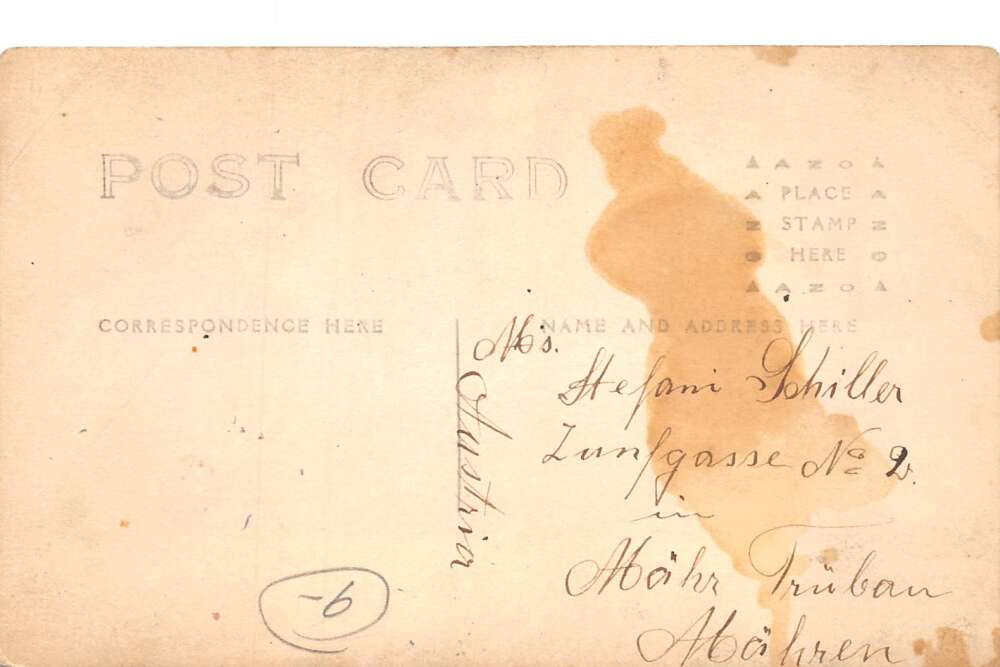 POST CARD
AZO
PLACE
STAMP
HERE
AZO
CORRESPONDENCE HERE
NAME AND ADDRESS HERE
Ms.
Stefani Schiller
Zunfgasse No 2.
in
Mähr Trübau
Mähren
Austria
6-